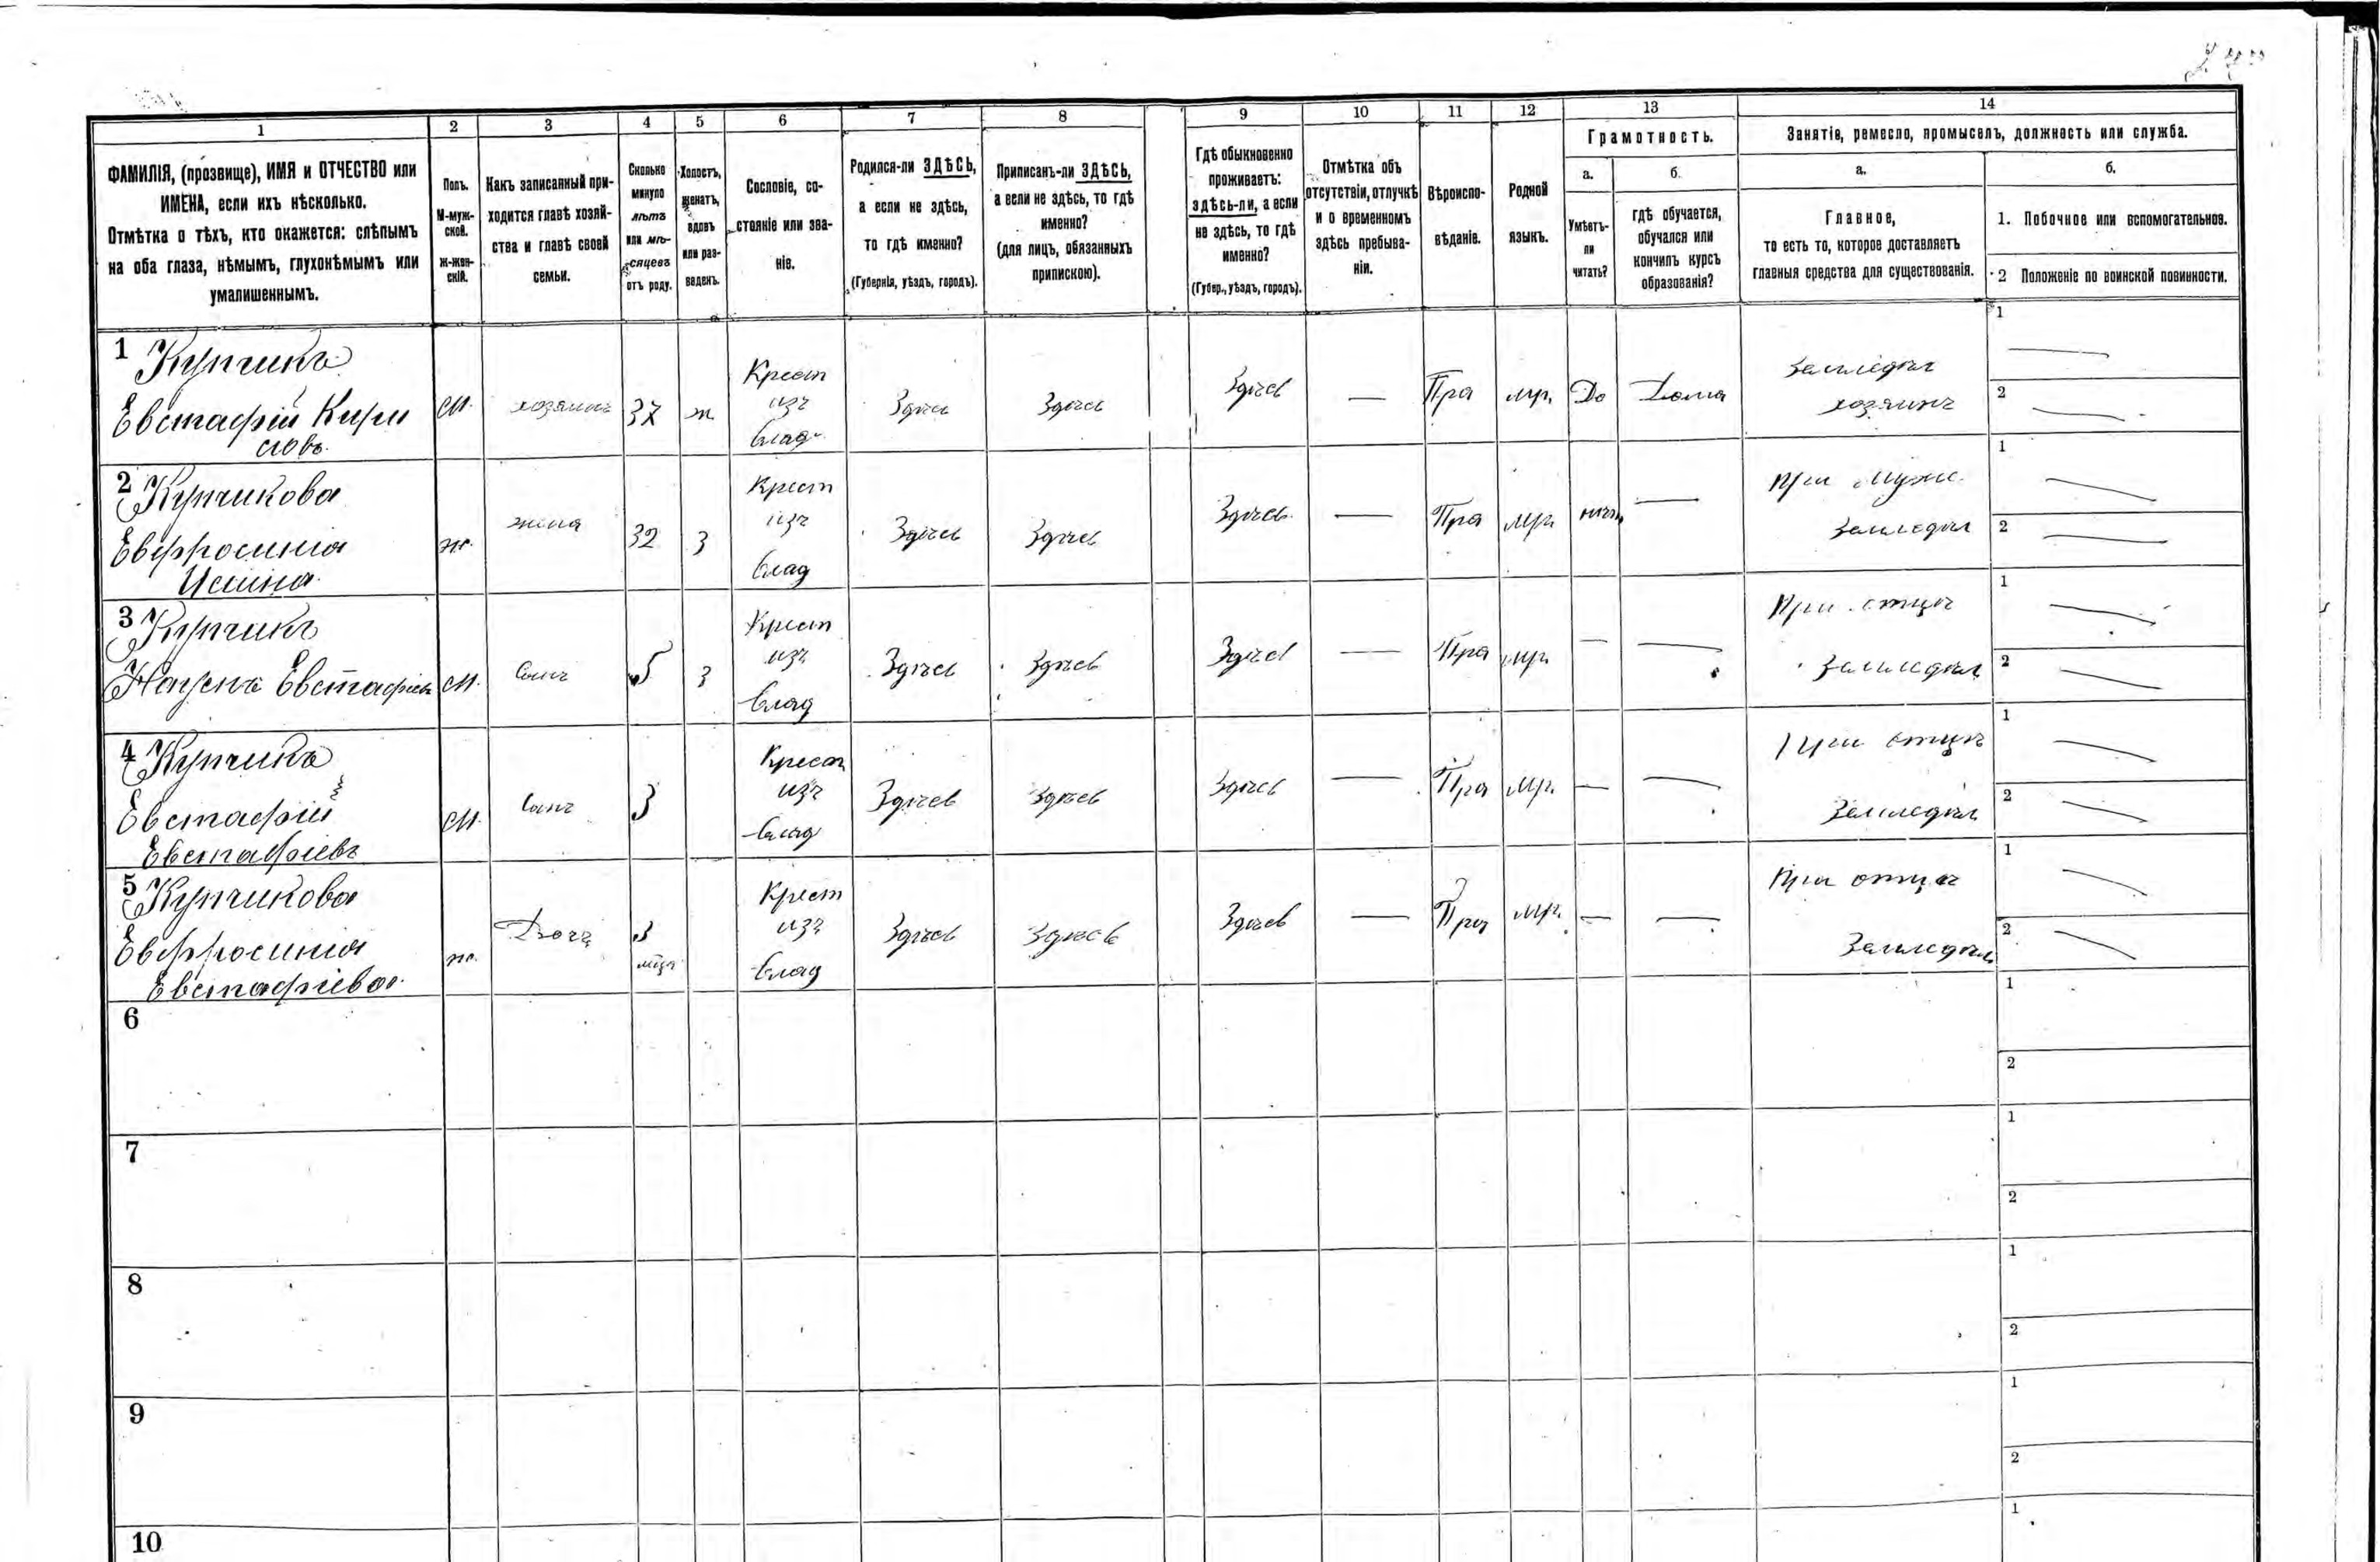 1
2
3
4
5
6
7
8
9
10
11
12
13
14
ФАМИЛІЯ, (прозвище), ИМЯ и ОТЧЕСТВО или
ИМЕНА, если ихъ нѣсколько.
Отмѣтка о тѣхъ, кто окажется: слѣпымъ
на оба глаза, нѣмымъ, глухонѣмымъ или
умалишеннымъ.
Полъ.
М-муж-
ской.
Ж-жен-
скій.
Какъ записанный при-
ходится главѣ хозяй-
ства и главѣ своей
семьи.
Сколько
минуло
лѣтъ
или мѣ-
сяцевъ
отъ роду.
Холостъ,
женатъ,
вдовъ
или раз-
веденъ.
Сословіе, со-
стояніе или зва-
ніе.
Родился-ли ЗДѢСЬ,
а если не здѣсь,
то гдѣ именно?
(Губернія, уѣздъ, городъ).
Приписанъ-ли ЗДѢСЬ,
а если не здѣсь, то гдѣ
именно?
(для лицъ, обязанныхъ
припискою).
Гдѣ обыкновенно
проживаетъ:
здѣсь-ли, а если
не здѣсь, то гдѣ
именно?
(Губер., уѣздъ, городъ).
Отмѣтка объ
отсутствіи, отлучкѣ
и о временномъ
здѣсь пребыва-
ніи.
Вѣроиспо-
вѣданіе.
Родной
языкъ.
Грамотность.
а.
Умѣетъ-
ли
читать?
б.
гдѣ обучается,
обучался или
кончилъ курсъ
образованія?
Занятіе, ремесло, промыселъ, должность или служба.
а.
Главное,
то есть то, которое доставляетъ
главныя средства для существованія.
б.
1. Побочное или вспомогательное.
2 Положеніе по воинской повинности.
1 Купчикъ
Евстафій Кири
ловъ.
м.
хозяинъ
37
ж
Крест
изъ
влад.
Здѣсь
Здѣсь
Здѣсь
—
Пра
мр.
Да
Дома
Земледѣл
хозяинъ
1
2
2 Купчикова
Евфросинія
ж.
жена
32
З
Крест
изъ
влад
Здѣсь
Здѣсь
Здѣсь
—
Пра
мр.
нѣтъ
—
При мужѣ
Земледѣл
1
2
3 Купчикъ
Евстафіев
м.
Сынъ
5
З
Крест
изъ
влад
Здѣсь
Здѣсь
Здѣсь
—
Пра
мр.
—
—
При отцѣ
Земледѣл
1
2
4 Купчикъ
Евстафій
Евстафіевъ
м.
Сынъ
3
Крест
изъ
влад
Здѣсь
Здѣсь
Здѣсь
—
Пра
мр.
—
—
При отцѣ
Земледѣл
1
2
5 Купчикова
Евфросинія
Евстафіева.
ж.
Дочь
3
мѣця
Крест
изъ
влад
Здѣсь
Здѣсь
Здѣсь
—
Пра
мр.
—
—
При отцѣ
Земледѣл
1
2
6
1
2
7
1
2
8
1
2
9
1
2
10
1